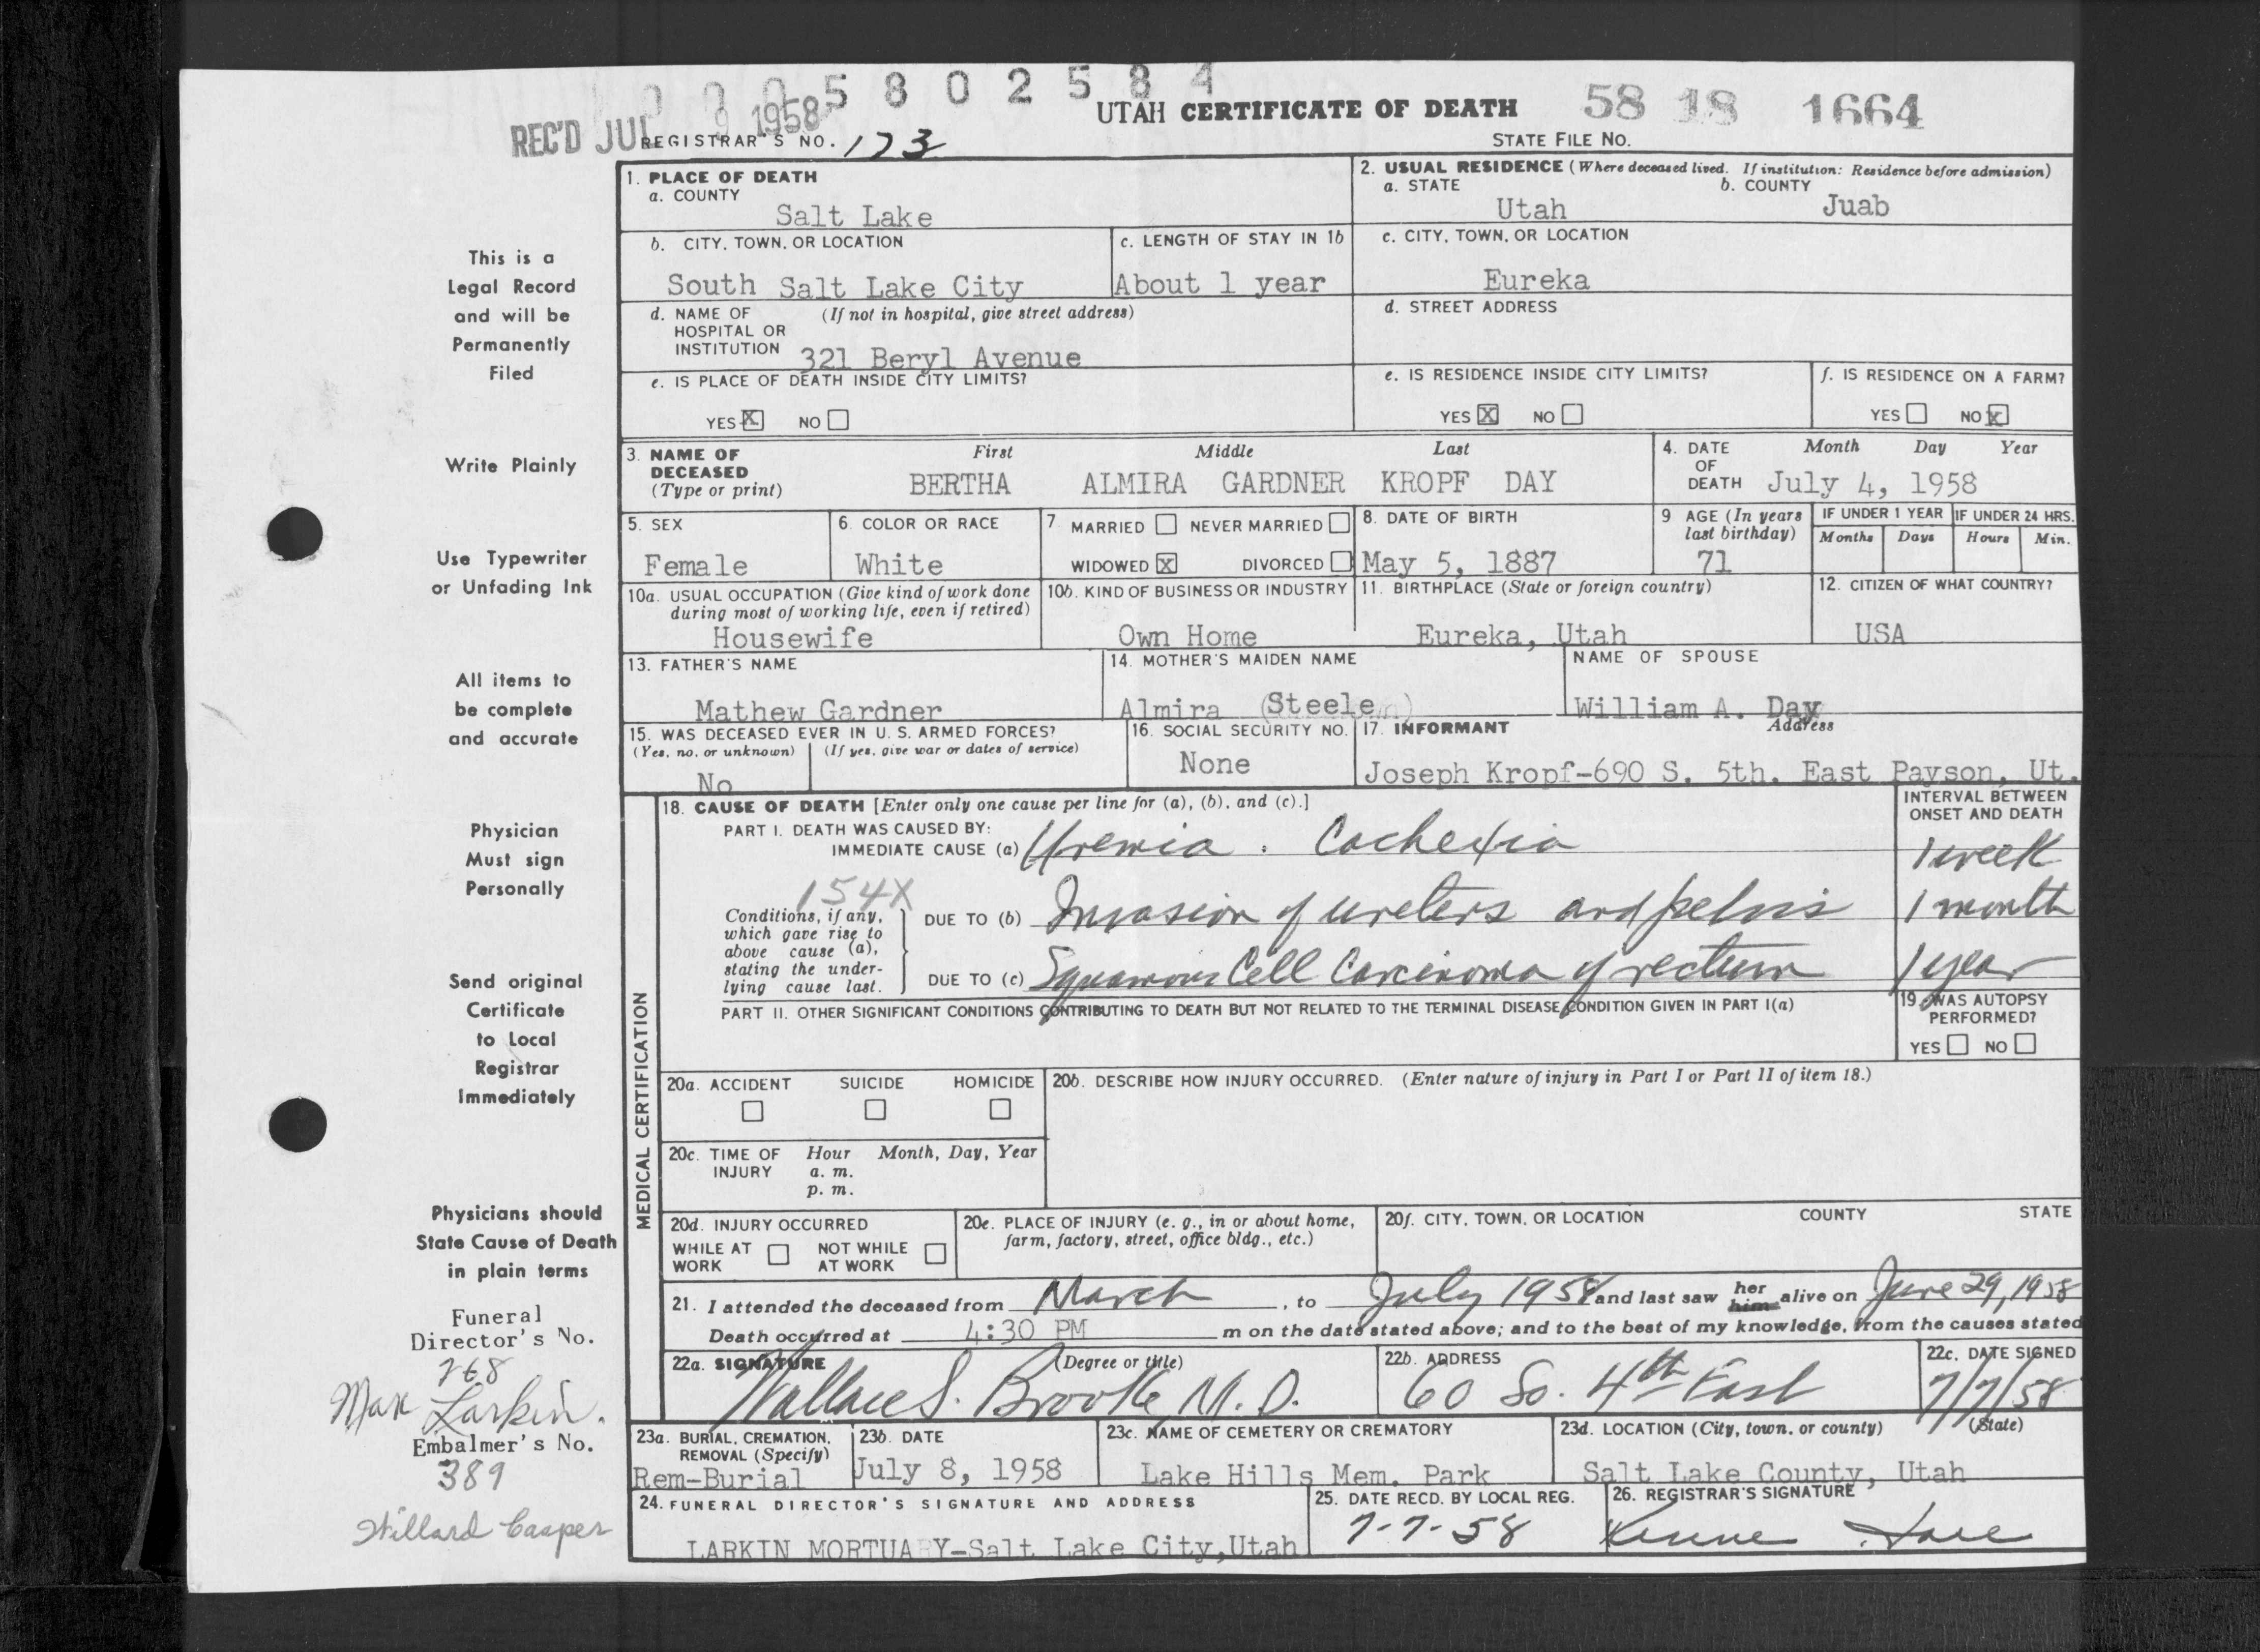 0 0 0 5 8 0 2 5 8 4
REC'D JUL 9 1958
UTAH CERTIFICATE OF DEATH
58 18 1664
REGISTRAR'S NO. 173
STATE FILE NO.
1. PLACE OF DEATH
a. COUNTY
Salt Lake
2. USUAL RESIDENCE (Where deceased lived. If institution: Residence before admission)
a. STATE b. COUNTY
Utah Juab
b. CITY, TOWN, OR LOCATION
South Salt Lake City
c. LENGTH OF STAY IN 1b
About 1 year
c. CITY, TOWN, OR LOCATION
Eureka
d. NAME OF (If not in hospital, give street address)
HOSPITAL OR
INSTITUTION 321 Beryl Avenue
d. STREET ADDRESS
e. IS PLACE OF DEATH INSIDE CITY LIMITS?
YES X NO
e. IS RESIDENCE INSIDE CITY LIMITS?
YES X NO
f. IS RESIDENCE ON A FARM?
YES NO X
3. NAME OF First Middle Last
DECEASED
(Type or print) BERTHA ALMIRA GARDNER KROPF DAY
4. DATE Month Day Year
OF
DEATH July 4, 1958
5. SEX
Female
6. COLOR OR RACE
White
7. MARRIED NEVER MARRIED
WIDOWED X DIVORCED
8. DATE OF BIRTH
May 5, 1887
9 AGE (In years
last birthday)
71
IF UNDER 1 YEAR IF UNDER 24 HRS.
Months Days Hours Min.
10a. USUAL OCCUPATION (Give kind of work done
during most of working life, even if retired)
Housewife
10b. KIND OF BUSINESS OR INDUSTRY
Own Home
11. BIRTHPLACE (State or foreign country)
Eureka, Utah
12. CITIZEN OF WHAT COUNTRY?
USA
13. FATHER'S NAME
Mathew Gardner
14. MOTHER'S MAIDEN NAME
Almira (Steele)
NAME OF SPOUSE
William A. Day
15. WAS DECEASED EVER IN U. S. ARMED FORCES?
(Yes, no, or unknown) (If yes, give war or dates of service)
No
16. SOCIAL SECURITY NO.
None
17. INFORMANT Address
Joseph Kropf-690 S. 5th. East Payson, Ut.
MEDICAL CERTIFICATION
18. CAUSE OF DEATH [Enter only one cause per line for (a), (b), and (c).]
INTERVAL BETWEEN
ONSET AND DEATH
PART I. DEATH WAS CAUSED BY:
IMMEDIATE CAUSE (a) Uremia . Cachexia 1 week
154X
Conditions, if any,
which gave rise to
above cause (a),
stating the under-
lying cause last.
DUE TO (b) Invasion of ureters and pelvis 1 month
DUE TO (c) Squamous Cell Carcinoma of rectum 1 year
PART II. OTHER SIGNIFICANT CONDITIONS CONTRIBUTING TO DEATH BUT NOT RELATED TO THE TERMINAL DISEASE CONDITION GIVEN IN PART I(a)
19. WAS AUTOPSY
PERFORMED?
YES NO
20a. ACCIDENT SUICIDE HOMICIDE
20b. DESCRIBE HOW INJURY OCCURRED. (Enter nature of injury in Part I or Part II of item 18.)
20c. TIME OF Hour Month, Day, Year
INJURY a. m.
p. m.
20d. INJURY OCCURRED
WHILE AT NOT WHILE
WORK AT WORK
20e. PLACE OF INJURY (e. g., in or about home,
farm, factory, street, office bldg., etc.)
20f. CITY, TOWN, OR LOCATION COUNTY STATE
21. I attended the deceased from March , to July 1958 and last saw her him alive on June 29, 1958
Death occurred at 4:30 PM m on the date stated above; and to the best of my knowledge, from the causes stated
22a. SIGNATURE (Degree or title)
Wallace S. Brooke M.D.
22b. ADDRESS
60 So. 4th East
22c. DATE SIGNED
7/7/58
23a. BURIAL, CREMATION,
REMOVAL (Specify)
Rem-Burial
23b. DATE
July 8, 1958
23c. NAME OF CEMETERY OR CREMATORY
Lake Hills Mem. Park
23d. LOCATION (City, town, or county) (State)
Salt Lake County, Utah
24. FUNERAL DIRECTOR'S SIGNATURE AND ADDRESS
LARKIN MORTUARY-Salt Lake City, Utah
25. DATE RECD. BY LOCAL REG.
7-7-58
26. REGISTRAR'S SIGNATURE
This is a
Legal Record
and will be
Permanently
Filed
Write Plainly
Use Typewriter
or Unfading Ink
All items to
be complete
and accurate
Physician
Must sign
Personally
Send original
Certificate
to Local
Registrar
Immediately
Physicians should
State Cause of Death
in plain terms
Funeral
Director's No.
268
Max Larkin.
Embalmer's No.
389
Willard Casper